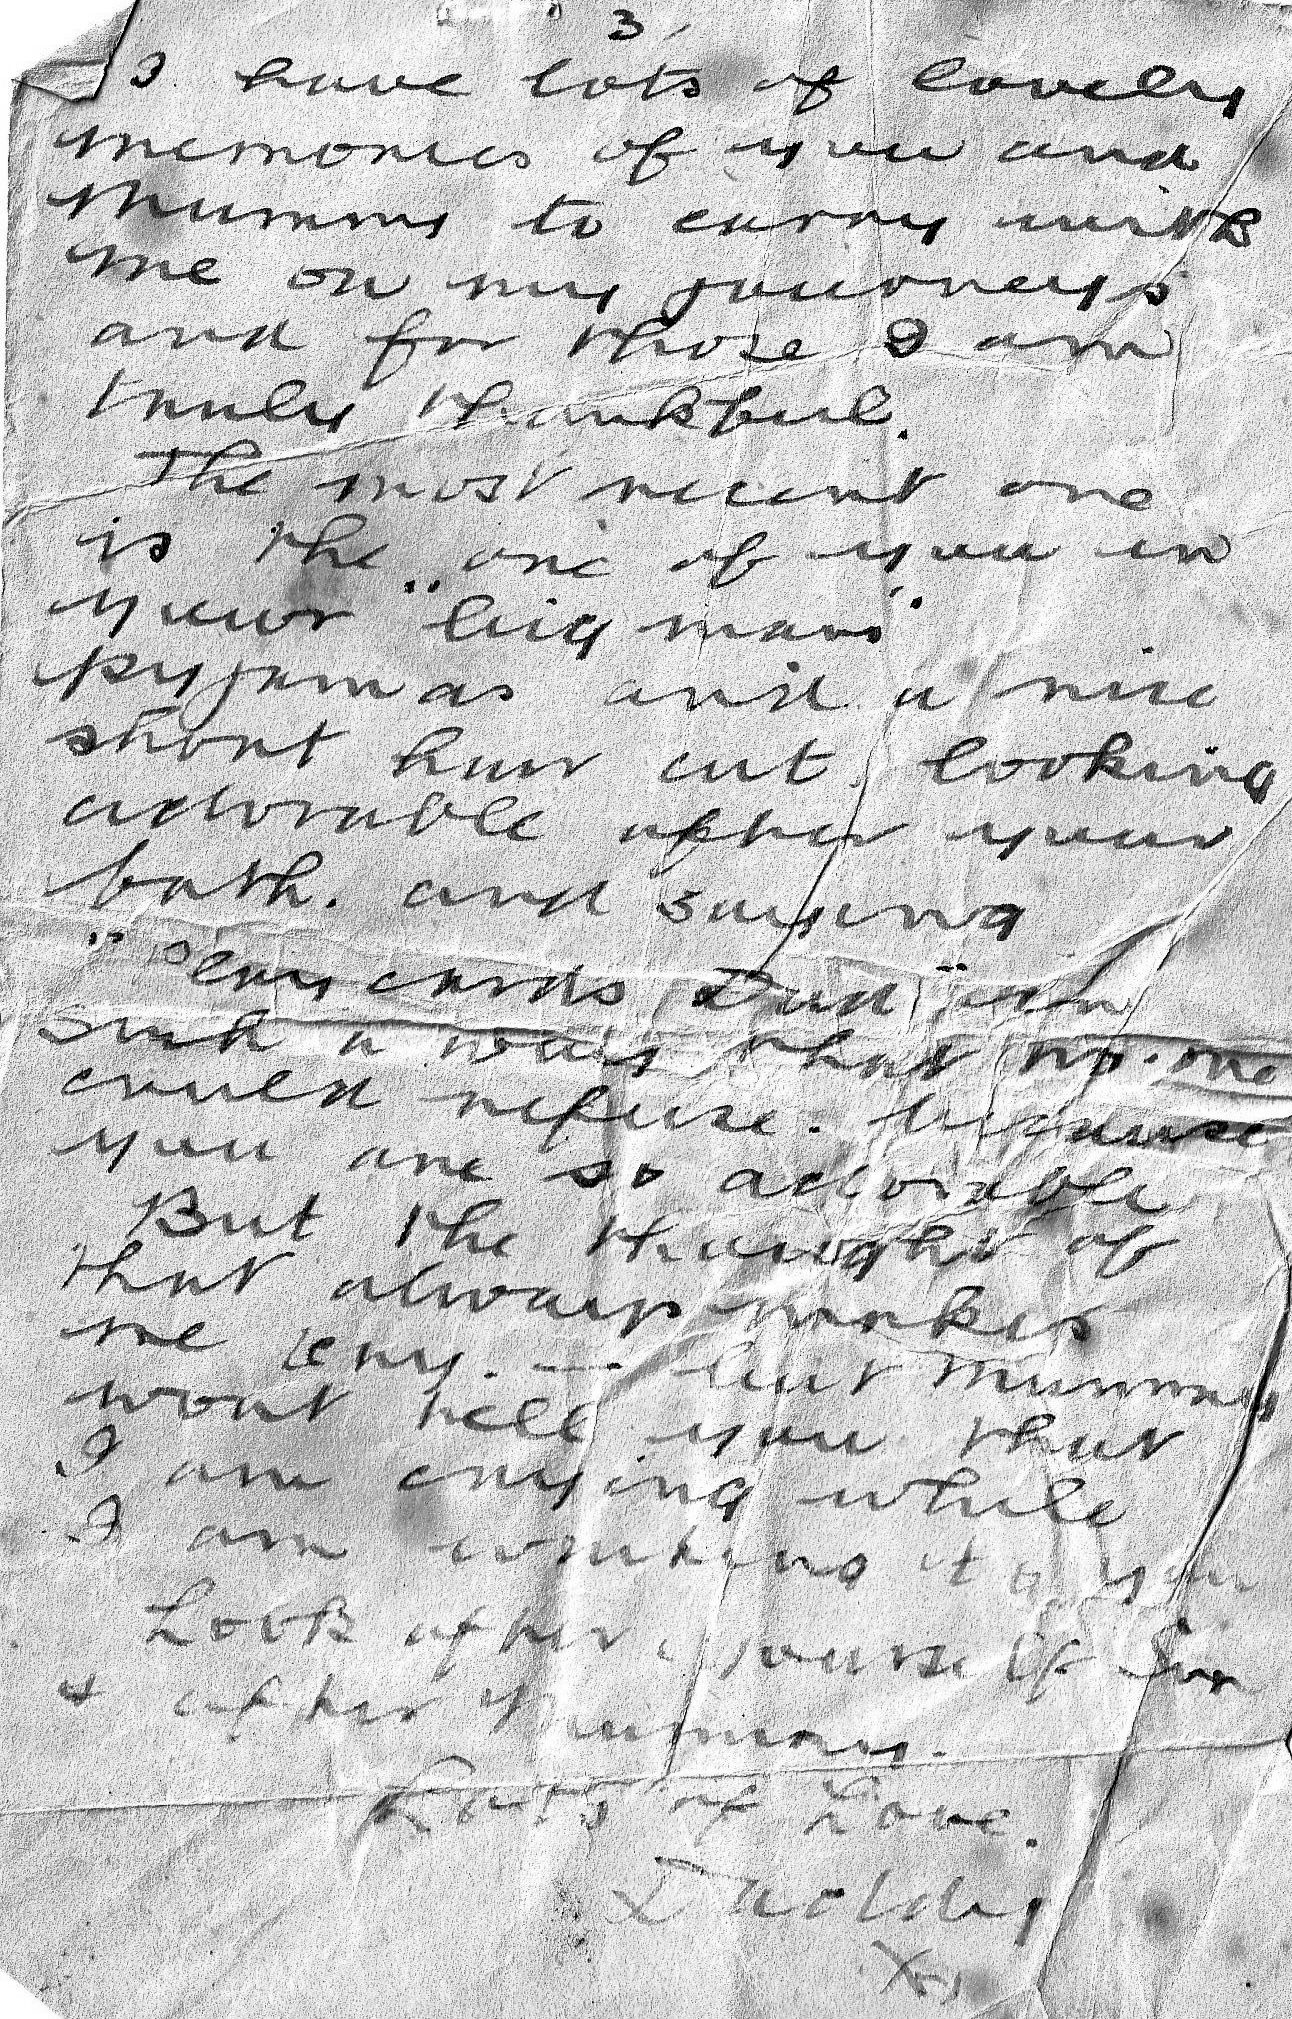 3.
I have lots of lovely
memories of you and
Mummy to carry with
me on my journeys
and for those I am
truly thankful.
The most recent one
is the one of you in
your "big man"
pyjamas and a nice
short hair cut looking
adorable after your
bath. and saying
"Pleay cards Dad" in
such a way that no-one
could refuse. because
you are so adorable
But the thought of
that always makes
me cry. — but Mummy
wont tell you that
I am crying while
I am writing to you
Look after yourself Son
& after Mummy.
Lots of Love.
Daddy
X